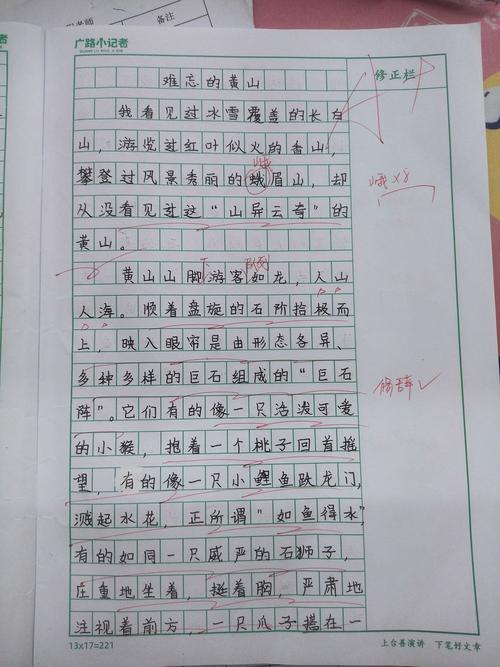 备注
广路小记者
修正栏
难忘的黄山
我看见过冰雪覆盖的长白
山，游览过红叶似火的香山，
峨
攀登过风景秀丽的蛾眉山，却
峨×8
从没看见过这“山异云奇”的
黄山。
队列
黄山山脚游客如龙，人山
人海。顺着盘旋的石阶拾极而
上，映入眼帘是由形态各异、
多种多样的巨石组成的“巨石
修辞✓
阵”。它们有的像一只活泼可爱
的小猴，抱着一个桃子回首摇
望，有的像一只小鲤鱼跃龙门，
溅起水花，正所谓“如鱼得水”，
有的如同一只威严的石狮子，
庄重地坐着，挺着胸，严肃地
注视着前方，一只爪子搭在一
13x17=221
上台善演讲 下笔好文章